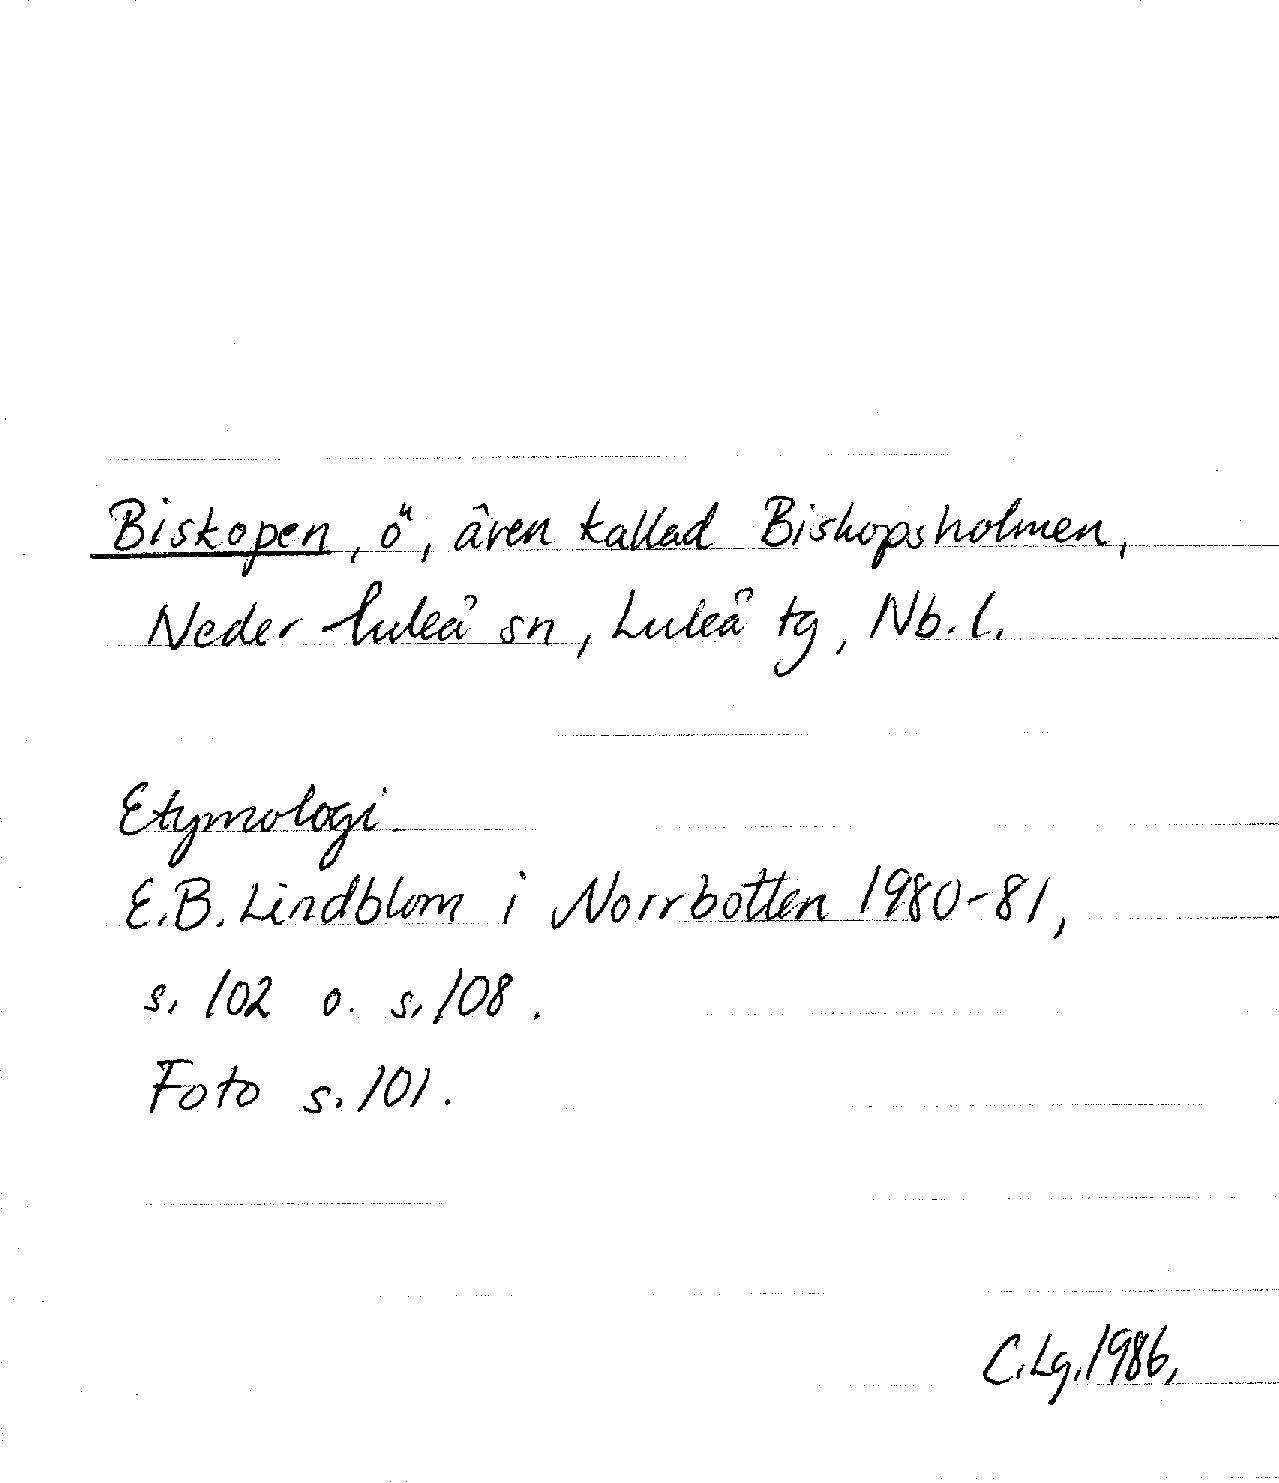 Biskopen, ö, även kallad Biskopsholmen,
Neder luleå sn, Luleå tg, Nb. l.
Etymologi
E.B. Lindblom i Norrbotten 1980-81,
s. 102 o. s. 108.
Foto s. 101.
C.Lg. 1986.